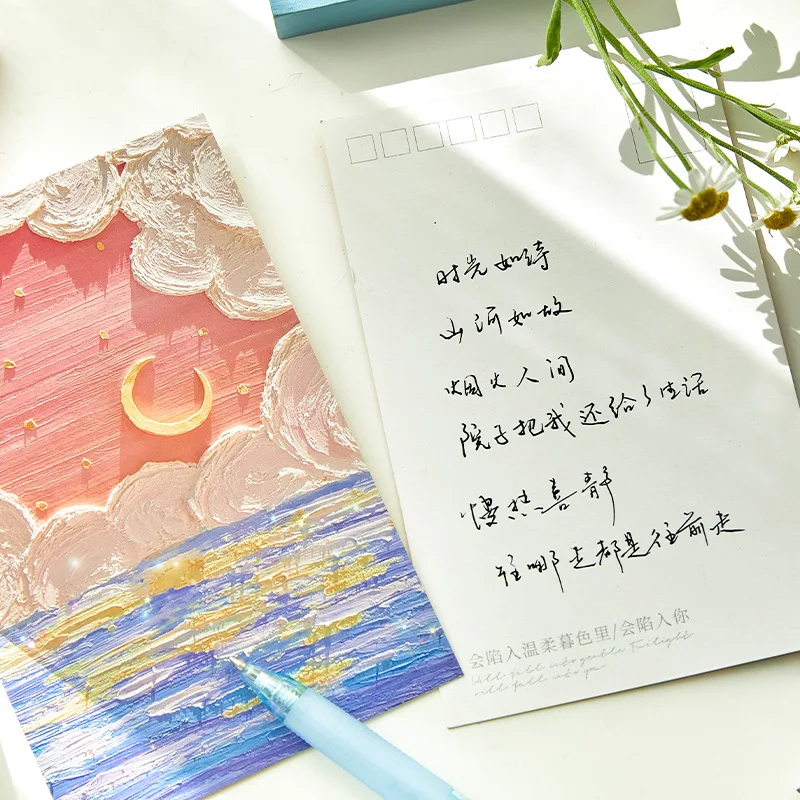 时光如诗
山河如故
烟火人间
院子把我还给了生活
慢热喜静
往哪走都是往前走
会陷入温柔暮色里/会陷入你
Will fall into gentle Twilight
will fall into you